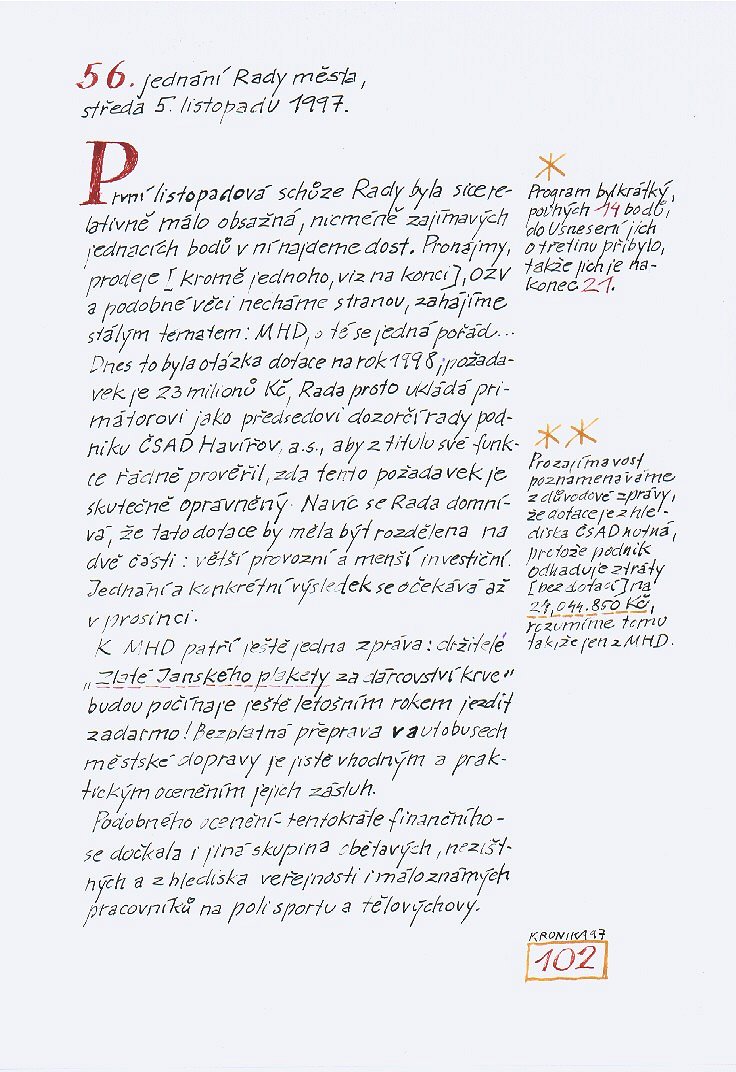 56. jednání Rady města,
středa 5. listopadu 1997.
První listopadová schůze Rady byla sice re-
lativně málo obsažná, nicméně zajímavých
jednacích bodů v ní najdeme dost. Pronájmy,
prodeje [kromě jednoho, viz na konci], OZV
a podobné věci necháme stranou, zahájíme
stálým tematem: MHD, o té se jedná pořád...
Dnes to byla otázka dotace na rok 1998; požada-
vek je 23 milionů Kč, Rada proto ukládá pri-
mátorovi jako předsedovi dozorčí rady pod-
niku ČSAD Havířov, a.s., aby z titulu své funk-
ce řádně prověřil, zda tento požadavek je
skutečně oprávněný. Navíc se Rada domní-
vá, že tato dotace by měla být rozdělena na
dvě části: větší provozní a menší investiční.
Jednání a konkrétní výsledek se očekává až
v prosinci.
K MHD patří ještě jedna zpráva: držitelé
„Zlaté Janského plakety za dárcovství krve"
budou počínaje ještě letošním rokem jezdit
zadarmo! Bezplatná přeprava v autobusech
městské dopravy je jistě vhodným a prak-
tickým oceněním jejich zásluh.
Podobného ocenění - tentokráte finančního -
se dočkala i jiná skupina obětavých, nezišt-
ných a z hlediska veřejnosti i málo známých
pracovníků na poli sportu a tělovýchovy.
*
Program byl krátký,
pouhých 14 bodů,
do Usnesení jich
o třetinu přibylo,
takže jich je na-
konec 21.
**
Pro zajímavost
poznamenáváme
z důvodové zprávy,
že dotace je z hle-
diska ČSAD nutná,
protože podnik
odhaduje ztráty
[bez dotací] na
24,044.850 Kč,
rozumíme tomu
tak, že jen z MHD.
KRONIKA 97
102